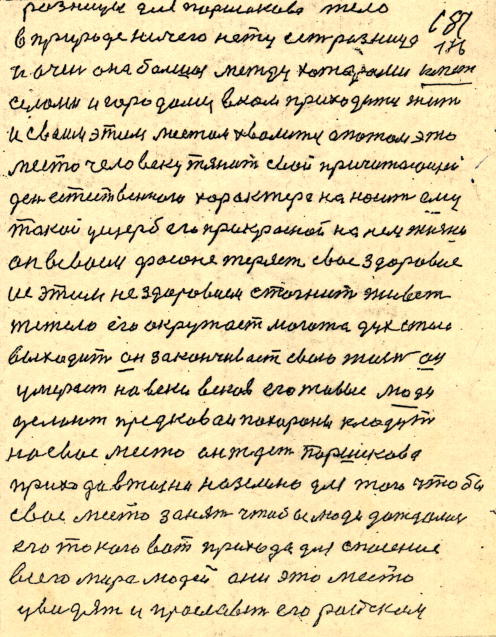 разницы для паршакова тело
в природе ничего нету есть разница
187
176
и очен она болшая между хоторами
селами и городами вком приходити жит
и сваим этим местом хвалитц а потом это
место человеку тянит свой причитающей
ден естиственного характера наносит ему
такой ущерб его прикрасной на нем жизнь
он всвоем фасоне теряет свое здоровие
и с этим нездоровием стогнит живет
тежело его окружает могота дух
выходит он закончивает свою жизн он
умерает на веки веков его такые люди
делают предковаи похараны кладут
насвое место он ждет Паршикова
прихода в жизни на землю для того чтобы
свое место занят чтобы люди дождалис
его такого вот прихода для спасение
всего мира людей они это место
увидят и прославят его райским